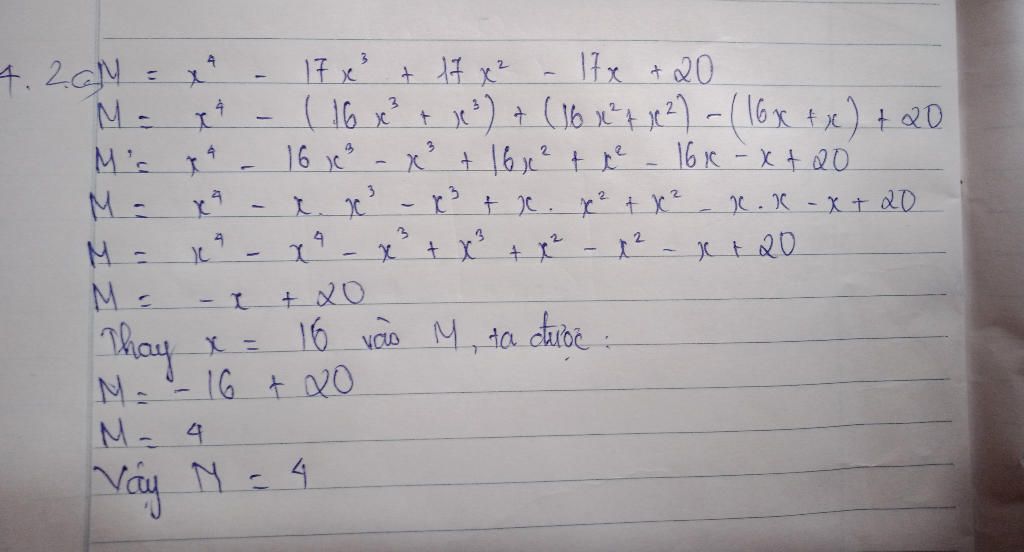 4.2.a) M = x⁴ - 17x³ + 17x² - 17x + 20
M = x⁴ - (16x³ + x³) + (16x² + x²) - (16x + x) + 20
M = x⁴ - 16x³ - x³ + 16x² + x² - 16x - x + 20
M = x⁴ - x.x³ - x³ + x.x² + x² - x.x - x + 20
M = x⁴ - x⁴ - x³ + x³ + x² - x² - x + 20
M = -x + 20
Thay x = 16 vào M, ta được:
M = -16 + 20
M = 4
Vậy M = 4